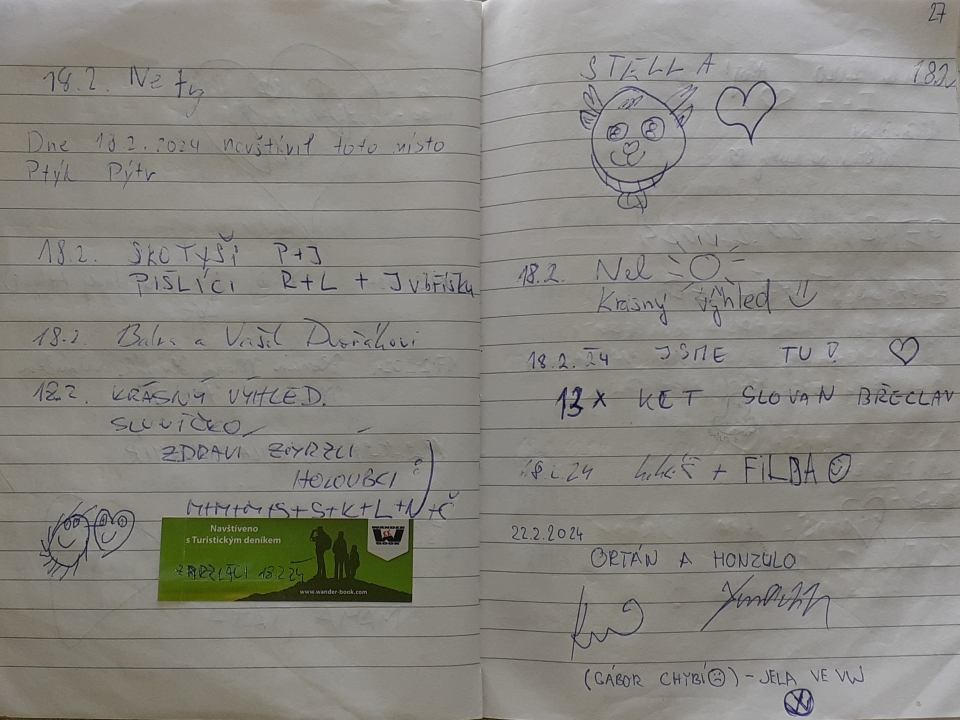 18.2. Ne ty
Dne 18 2. 2024 navštívil toto místo
Ptýk Pýtr
18.2. SKOTYŠI P+J
PIŠLÍCI R+L + J v bříšku
18.2. a Vašek Dvořákovi
18.2. KRÁSNÝ VÝHLED.
SLUNÍČKO,
ZDRAVÍ ZMRZLÍ
HOLOUBCI :)
M+M+M+S+S+K+L+N+Č
Navštíveno
s Turistickým deníkem
WANDER BOOK
18.2.24
www.wander-book.com
27
STELLA
18.2.
18.2. Nel
Krásný výhled
18.2.24 JSME TU
13x KCT SLOVAN BŘECLAV
18.2.24 + FILDA
22.2.2024
ORTÁN A HONZULO
(GÁBOR CHYBÍ) - JELA VE VW